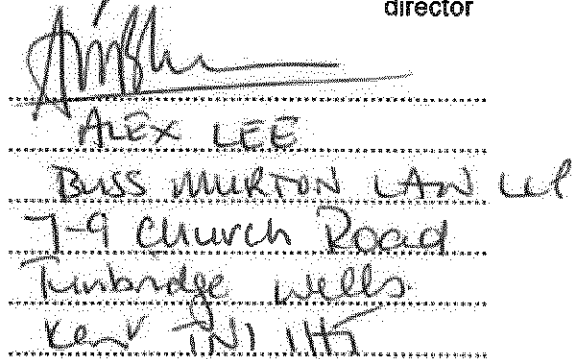 director
ALEX LEE
BUSS MURTON LAW LLP
7-9 Church Road
Tunbridge Wells
Kent TN1 1HT